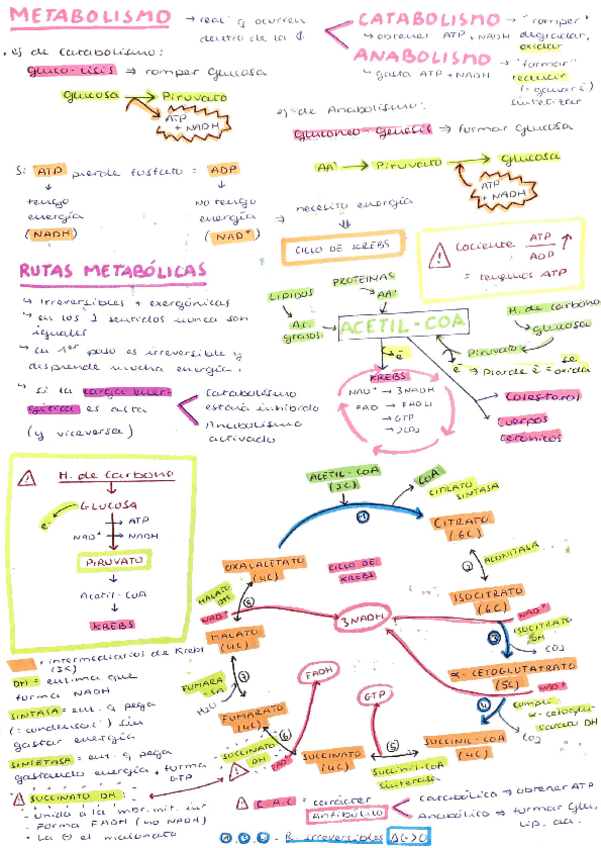 METABOLISMO → real q ocurren
dentro de la
CATABOLISMO → "romper"
↳ obtener ATP + NADH degradar,
oxidar
ANABOLISMO → "formar"
↳ gasta ATP + NADH reducir
(= ganar ē)
sintetizar
. ej de catabolismo:
gluco-lisis ⇒ romper glucosa
Glucosa → Piruvato
ATP
+ NADH
ej de Anabolismo:
Gluconeo-genesis ⇒ formar glucosa
AA' → Piruvato → glucosa
ATP
+ NADH
Si ATP pierde fosfato = ADP
↓ ↓
tengo no tengo
energía energía ⇒ necesito energía
(NADH) (NAD⁺)
CICLO DE KREBS
⚠ Cociente ATP / ADP ↑
= tenemos ATP
RUTAS METABÓLICAS
↳ Irreversibles + exergónicas
↳ en los 2 sentidos nunca son
iguales
↳ en 1er paso es irreversible y
desprende mucha energía.
↳ si la carga ener-
gética es alta
(y viceversa)
Catabolismo
estará inhibido
Anabolismo
activado
LÍPIDOS
Ac.
grasos
PROTEINAS
AA'
ACETIL-COA
H. de carbono
glucosa
Piruvato
ē ⇒ Pierde ē = se
oxida
ē
KREBS
NAD⁺ → 3NADH
FAD → FADH2
→ GTP
→ 2CO₂
→ Colesterol
Cuerpos
cetónicos
⚠ H. de Carbono
GLUCOSA
e⁻
→ ATP
NAD⁺ → NADH
PIRUVATO
Acetil-CoA
KREBS
ACETIL-COA
(2C)
COA
CITRATO
SINTASA
1
CITRATO
(6C)
2
ACONITASA
ISOCITRATO
(6C)
NAD⁺
3
ISOCITRATO
DH
CO₂
α-CETOGLUTARATO
(5C)
NAD⁺
4
Complj
α-cetoglu-
tarato DH
CO₂
SUCCINIL-COA
(4C)
5
Succinil-CoA
sintetasa
GTP
SUCCINATO
(4C)
6
SUCCINATO
DH
FAD
FADH
FUMARATO
(4C)
7
FUMARA-
SA
H₂O
MALATO
(4C)
8
MALATO
DH
NAD⁺
OXALACETATO
(4C)
CICLO DE
KREBS
3NADH
= intermediarios de Krebs
DH = enzima que
forma NADH
SINTASA = enz. q pega
(= condensac') sin
gastar energía
SINTETASA = enz. q pega
gastando energía, forma
GTP
⚠ SUCCINATO DH:
- Unida a la mbr. mit. int
- Forma FADH (no NADH)
- La (-) el malonato
⚠ C.A.C = carácter
Anfibólico
Catabólico → obtener ATP
Anabólico → formar Glu,
lip, aa.
1, 3, 4. R. irreversibles